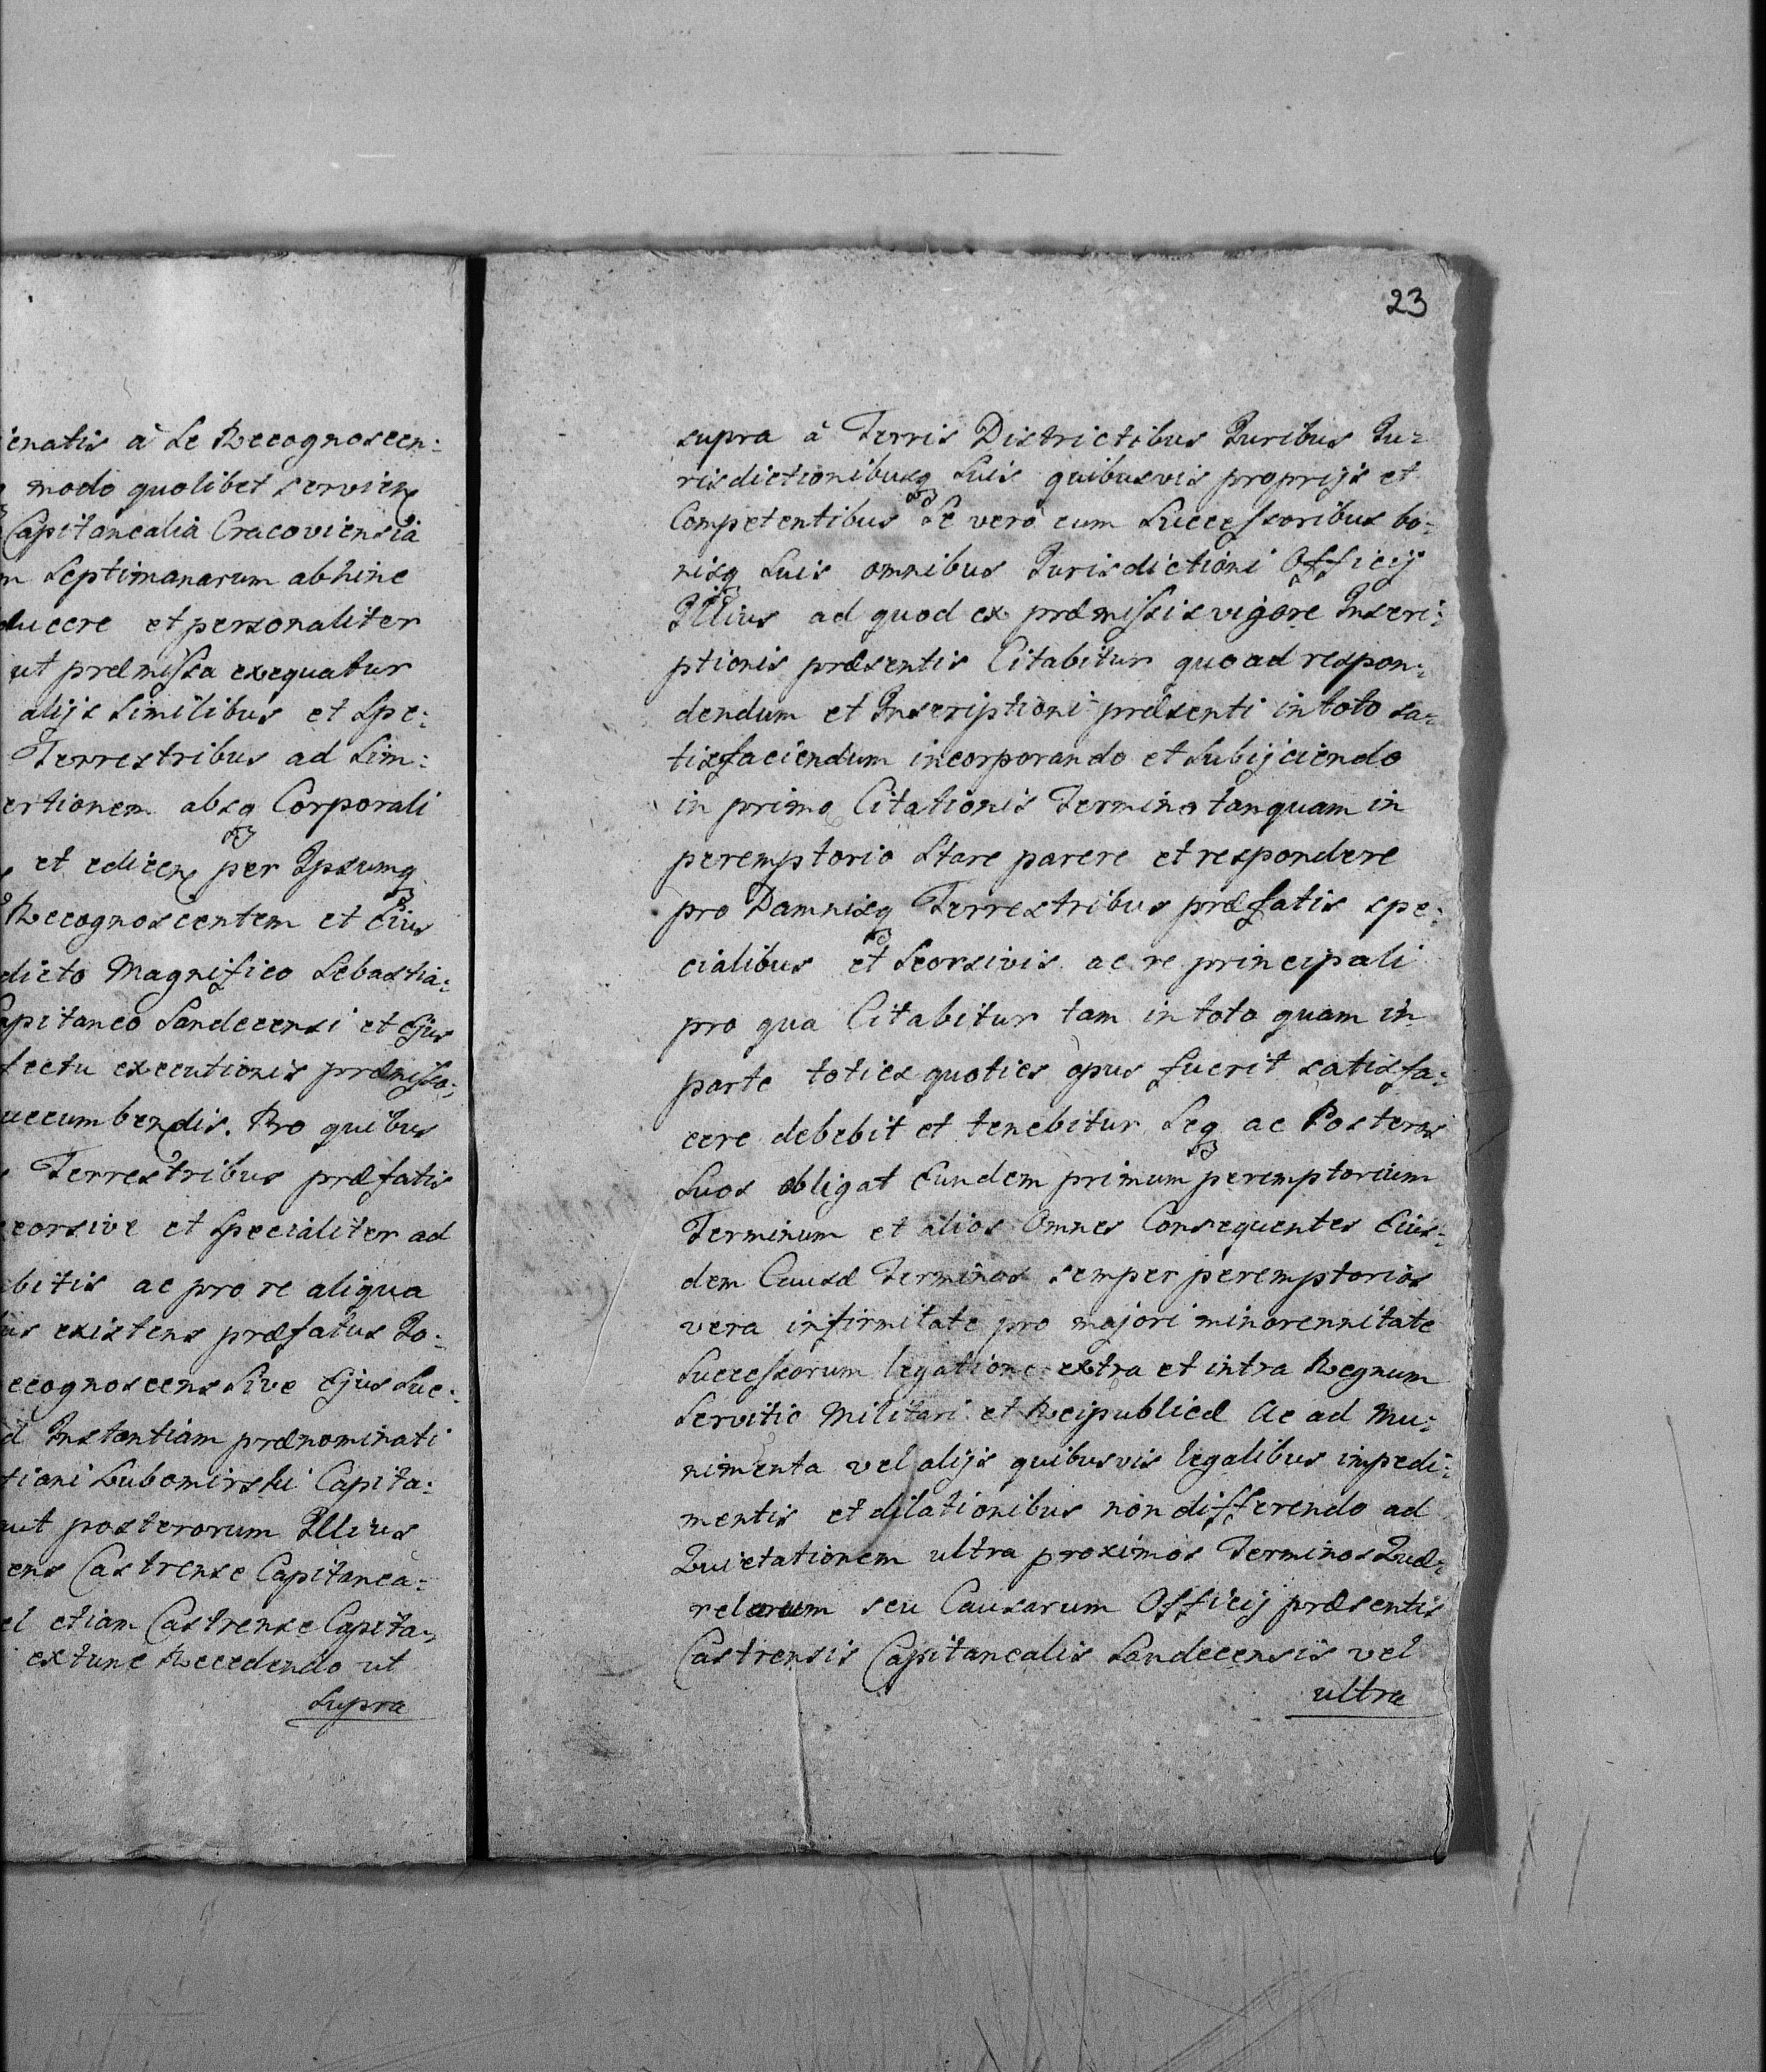 ienatis à Se Recognoscen:
modo quolibet servien
Capitanealia Cracoviensia
m Septimanarum abhinc
ducere et personaliter
ut præmissa exequatur
alijs Similibus et Spe:
Terrestribus ad Sim:
ertionem absq Corporali
et edicen per Ipsumq
Recognoscentem et Eius
dicto Magnifico Sebastia:
apitaneo Sandecensi et Ejus
fectu executionis præmisso:
uccumbendis. Pro quibus
Terrestribus præfatis
eorsive et Specialiter ad
bitis ac pro re aliqua
us existens præfatus Jo:
ecognoscens Sive Ejus Suc:
d Instantiam prænominati
tiani Lubomirski Capita:
aut posterorum Illius
ens Castrense Capitanea:
el etiam Castrense Capita:
extunc Recedendo ut
Supra
23
supra à Terris Districtibus Juribus Ju:
risdictionibusq Suis quibusvis proprijs et
Competentibus Se verò cum Successoribus bo:
nisq Suis omnibus Jurisdictioni Officij
Illius ad quod ex præmissis vigore Inscri:
ptionis præsentis Citabitur quo ad respon:
dendum et Inscriptioni præsenti in toto sa:
tisfaciendum incorporando et Subijciendo
in primo Citationis Termino tanquam in
peremptorio Stare parere et respondere
pro Damnisq Terrestribus præfatis spe:
cialibus et Seorsivis ac re principali
pro qua Citabitur tam in toto quam in
parte toties quoties opus fuerit satisfa:
cere debebit et tenebitur Seq ac Posteros
Suos obligat Eundem primum peremptorium
Terminum et alios Omnes Consequentes Eius:
dem Causæ Terminos semper peremptorios
vera infirmitate pro majori minorennitate
Successorum legatione extra et intra Regnum
Servitio Militari et Reipublicæ Ac ad Mu:
nimenta vel alijs quibusvis legalibus impedi:
mentis et dilationibus non differendo ad
Quietationem ultra proximos Terminos Quæ:
relarum seu Causarum Officij præsentis
Castrensis Capitanealis Sandecensis vel
ultra